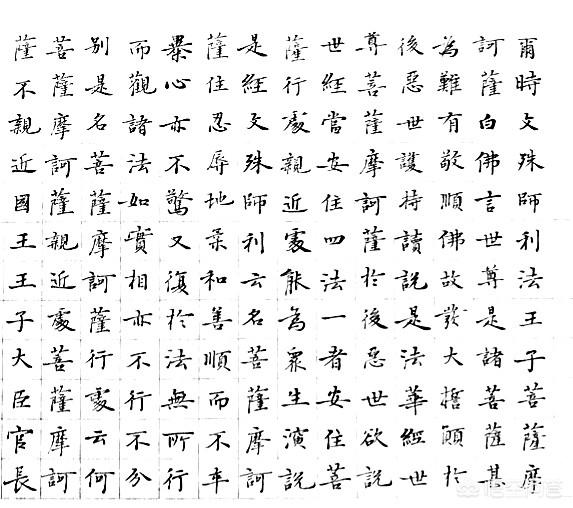 爾時文殊師利法王子菩薩摩
訶薩白佛言世尊是諸菩薩甚
為難有敬順佛故發大誓願於
後惡世護持讀說是法華經世
尊菩薩摩訶薩於後惡世欲說
世經當安住四法一者安住菩
薩行處親近處能為眾生演說
是經文殊師利云名菩薩摩訶
薩住忍辱地柔和善順而不卒
暴心亦不驚又復於法無所行
而觀諸法如實相亦不行不分
別是名菩薩摩訶薩行處云何
菩薩摩訶薩親近處菩薩摩訶
薩不親近國王王子大臣官長
悟空问答